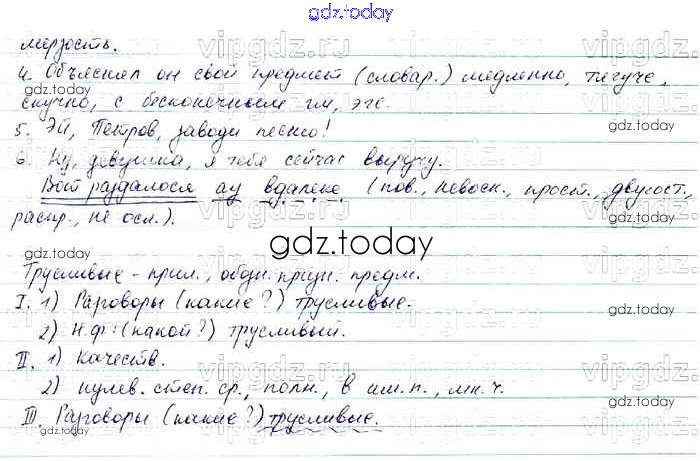 gdz.today
мерзость.
4. Объяснял он свой предмет (словар.) медленно, тягуче,
скучно, с бесконечным гм, эге.
5. Эй, Петров, заводи песню!
6. Ну, девушка, я тебе сейчас выручу.
Вот раздалося ау вдалеке (пов., невоск., прост., двусост.,
распр., не осл.).
gdz.today
Трусливые - прил., обозн. призн. предм.
I. 1) Разговоры (какие?) трусливые.
2) Н.ф: (какой?) трусливый.
II. 1) Качеств.
2) нулев. степ. ср., полн., в им.п., мн.ч.
III. Разговоры (какие?) трусливые.